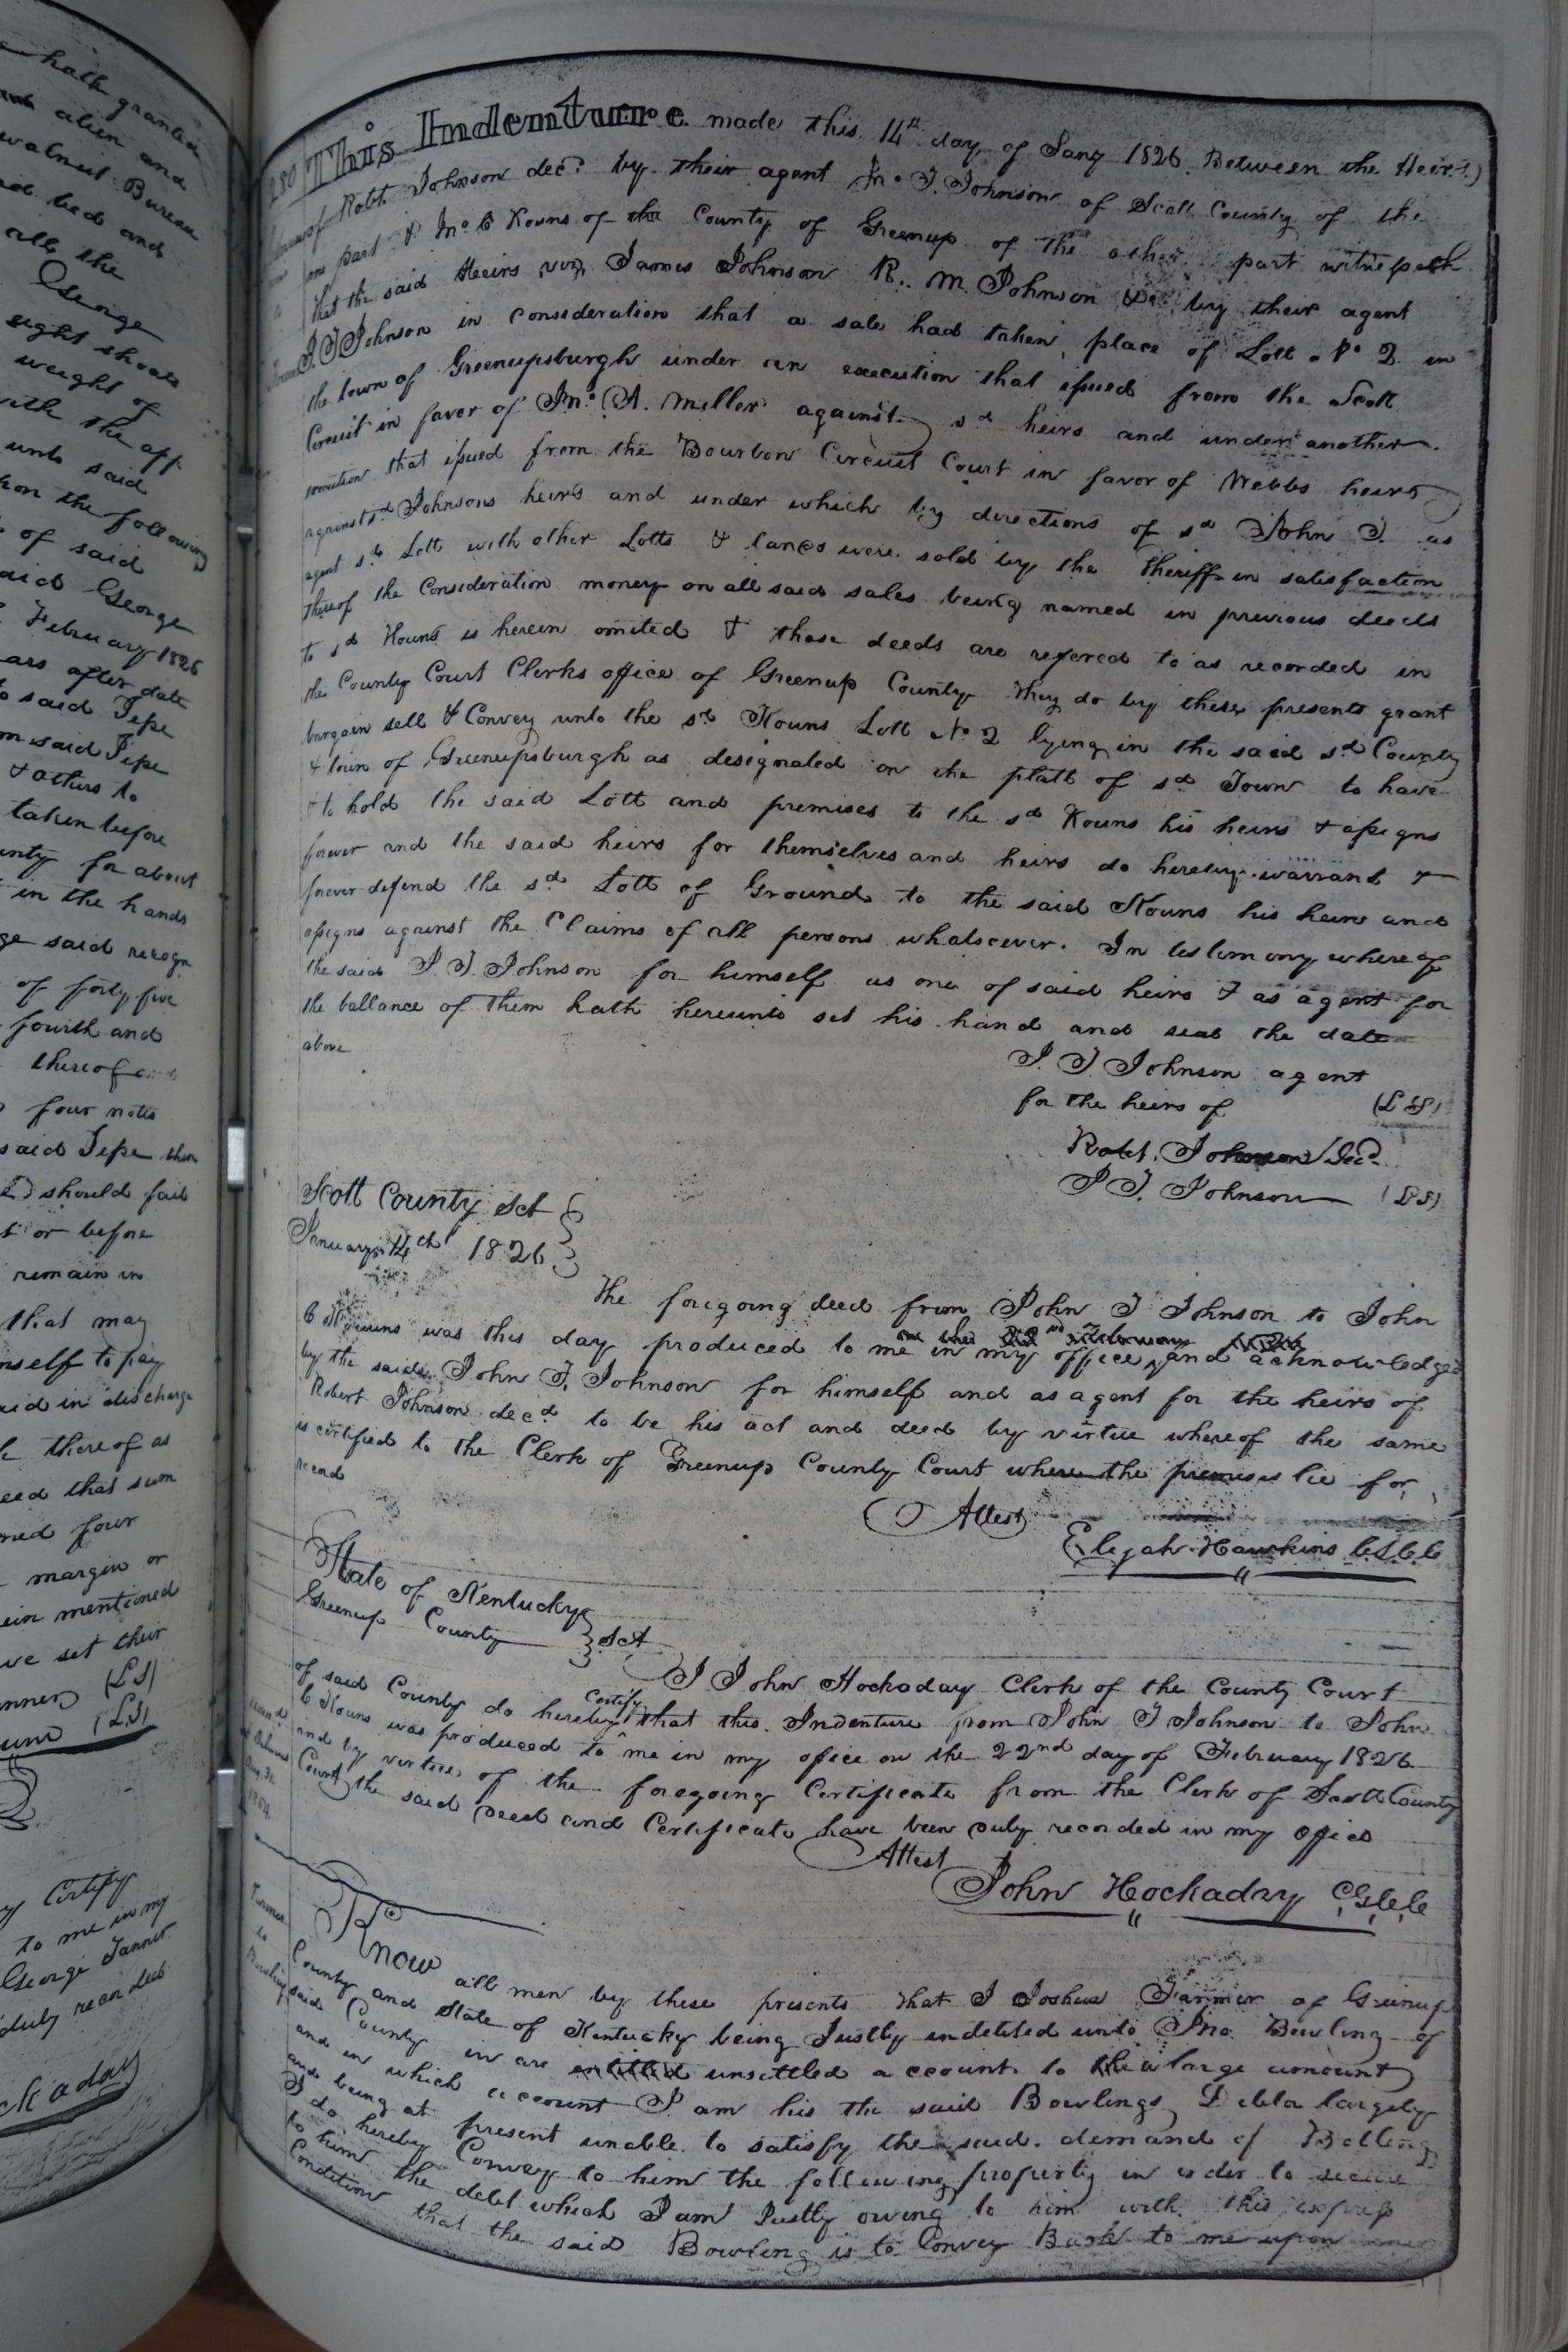 hath granted
alien and
walnut Bureau
bed and
all the
George
eight shoats
weight of
with the app
unto said
on the following
of said
said George
February 1826
ars after date
to said Jesse
said Jesse
& others to
taken before
unty for about
in the hands
said recogn
of forty five
fourth and
thereof
four notes
said Jesse then
should fail
or before
remain in
that may
himself to pay
aid in discharge
thereof as
eed that sum
four
margin or
ein mentioned
ve set their
(LS)
(LS)
Certify
to me in my
George Tanner
duly recorded
ckaday
280 This Indenture made this 14th day of Jany 1826 Between the Heirs
of Robt Johnson decd by their agent Jno T. Johnson of Scott County of the
one part & Jno C Kouns of the County of Greenup of the other part witnesseth
that the said Heirs viz James Johnson R. M. Johnson &c by their agent
J. T Johnson in consideration that a sale had taken place of Lott No 2 in
the town of Greenupsburgh under an execution that issued from the Scott
Circuit in favor of Jno A. Miller against sd heirs and under another
execution that issued from the Bourbon Circuit Court in favor of Webbs heirs
against sd Johnsons heirs and under which by directions of sd John T. as
agent sd Lott with other Lotts & lands were sold by the Sheriff in satisfaction
thereof the Consideration money on all said sales being named in previous deeds
to sd Kouns is herein omited & those deeds are refered to as recorded in
the County Court Clerks office of Greenup County They do by these presents grant
bargain sell & Convey unto the sd Kouns Lott No 2 lying in the said sd County
& town of Greenupsburgh as designated on the platt of sd Town to have
& to hold the said Lott and premises to the sd Kouns his heirs & assigns
forever and the said heirs for themselves and heirs do hereby warrant &
forever defend the sd Lott of Ground to the said Kouns his heirs and
assigns against the Claims of all persons whatsoever. In testimony whereof
the said J. T. Johnson for himself as one of said heirs & as agent for
the ballance of them hath hereunto set his hand and seal the date
above
J. T Johnson agent
for the heirs of (LS)
Robt. Johnson Decd
J T. Johnson (LS)
Scott County Sct
January 14th 1826
The foregoing deed from John T Johnson to John
C Kouns was this day produced to me in my office and acknowledged
by the said John T. Johnson for himself and as agent for the heirs of
Robert Johnson decd to be his act and deed by virtue whereof the same
is certified to the Clerk of Greenup County Court where the premises lie for
record
Attest
Elijah Hawkins C S C C
State of Kentucky
Greenup County Sct
I John Hockaday Clerk of the County Court
of said County do hereby Certify that this Indenture from John T Johnson to John
C Kouns was produced to me in my office on the 22nd day of February 1826
and by virtue of the foregoing Certificate from the Clerk of Scott County
Court the said Deed and Certificate have been duly recorded in my office
Attest
John Hockaday C G C C
Farmer
to
Bowling
Know all men by these presents that I Joshua Farmer of Greenup
County and State of Kentucky being Justly indebted unto Jno. Bowling of
said County in are unsettled account to a large amount
and in which account I am his the said Bowlings Debtor largely
and being at present unable to satisfy the said demand of Bolling
I do hereby Convey to him the following property in order to secure
to him the debt which I am Justly owing to him with this express
Condition that the said Bowling is to Convey Back to me upon